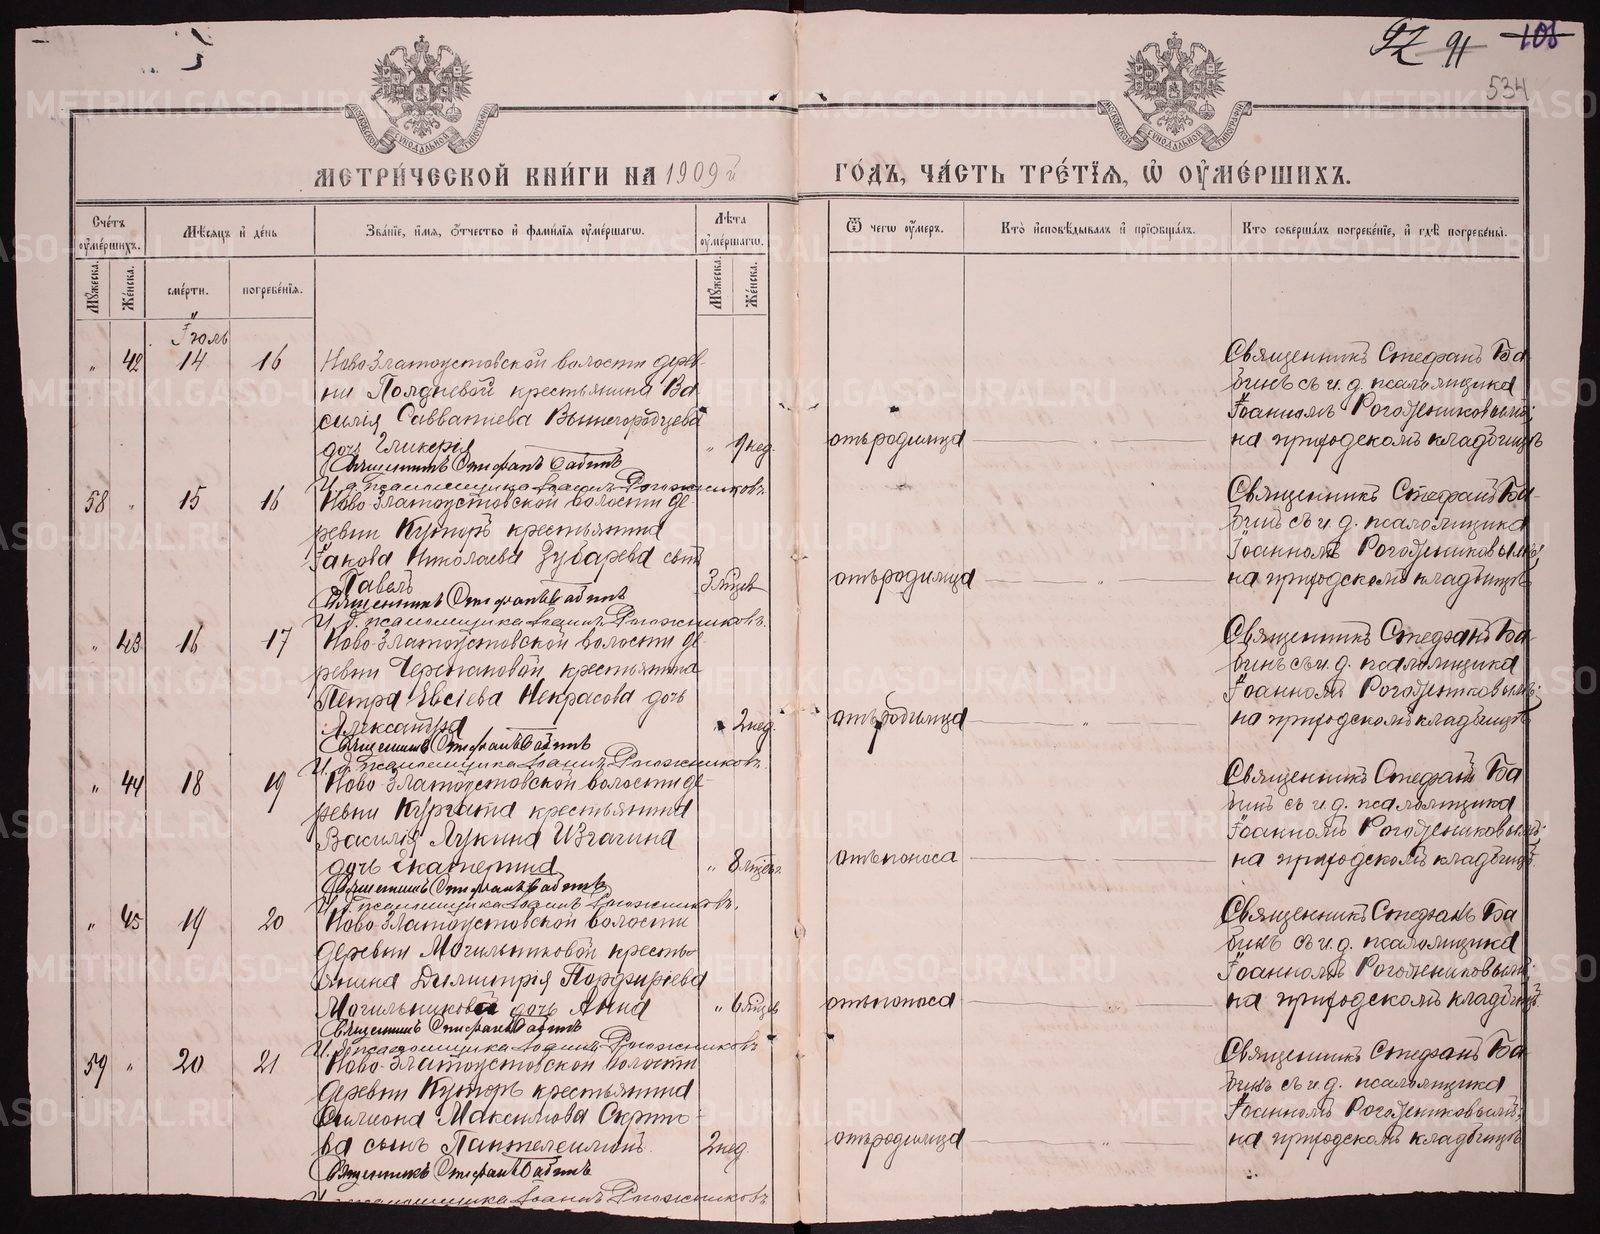 92 91 108
534
МЕТРИ́ЧЕСКОЙ КНИ́ГИ НА 1909 г.
ГО́ДЪ, ЧА́СТЬ ТРЕ́ТІЯ, Ѽ ОУ҆МЕ́РШИХЪ.
Сче́тъ оу҆ме́ршихъ.
Мѣ́сяцъ и҆ де́нь
Зва́ніе, и҆́мя, о҆́тчество и҆ фами́лія оу҆ме́ршагѡ.
Лѣ́та оу҆ме́ршагѡ.
Ѿ чегѡ̀ оу҆́меръ.
Кто̀ и҆сповѣ́дывалъ и҆ прїѡбща́лъ.
Кто соверша́лъ погребе́ніе, и҆ гдѣ̀ погребе́ны.
Му́жеска. Же́нска. сме́рти. погребе́нія. Му́жеска. Же́нска.
Іюль
" 42 14 16 Ново-Златоустовской волости дерев-
ни Полдневой крестьянина Ва
силія Савватиева Вышегородцева
дочь Гликерія " 9 нед. отъ родимца
Священникъ Стефанъ Бабинъ
И. д. псаломщика Іоаннъ Рогожниковъ.
Священникъ Стефанъ Ба
бинъ съ и. д. псаломщика
Іоанномъ Рогожниковымъ;
на приходскомъ кладбищѣ
58 " 15 16 Ново-Златоустовской волости де-
ревни Хуторъ крестьянина
Іакова Николаева Зубарева сынъ
Павелъ 3 мѣсяц. отъ родимца
Священникъ Стефанъ Бабинъ
И. д. псаломщика Іоаннъ Рогожниковъ.
Священникъ Стефанъ Ба-
бинъ съ и. д. псаломщика
Іоанномъ Рогожниковымъ;
на приходскомъ кладбищѣ
" 43 16 17 Ново-Златоустовской волости де-
ревни Черепановой крестьянина
Петра Евсіева Некрасова дочь
Александра " 2 нед. отъ родимца
Священникъ Стефанъ Бабинъ
И. д. псаломщика Іоаннъ Рогожниковъ.
Священникъ Стефанъ Ба-
бинъ съ и. д. псаломщика
Іоанномъ Рогожниковымъ;
на приходскомъ кладбищѣ
" 44 18 19 Ново-Златоустовской волости де-
ревни Кургата крестьянина
Василія Лукина Изгагина
дочь Екатерина " 8 мѣсяц. отъ поноса
Священникъ Стефанъ Бабинъ
И. д. псаломщика Іоаннъ Рогожниковъ.
Священникъ Стефанъ Ба
бинъ съ и. д. псаломщика
Іоанномъ Рогожниковымъ;
на приходскомъ кладбищѣ
" 45 19 20 Ново-Златоустовской волости
деревни Могильниковой кресть-
янина Димитрія Порфиріева
Могильникова дочь Анна " 6 мѣсяц. отъ поноса
Священникъ Стефанъ Бабинъ
И. д. псаломщика Іоаннъ Рогожниковъ
Священникъ Стефанъ Ба
бинъ съ и. д. псаломщика
Іоанномъ Рогожниковымъ;
на приходскомъ кладбищѣ
59 " 20 21 Ново-Златоустовской волости
деревни Хуторъ крестьянина
Филиона Максимова Скрипо-
ва сынъ Пантелеимонъ. 2 нед. отъ родимца
Священникъ Стефанъ Бабинъ
И. д. псаломщика Іоаннъ Рогожниковъ
Священникъ Стефанъ Ба
бинъ съ и. д. псаломщика
Іоанномъ Рогожниковымъ;
на приходскомъ кладбищѣ
METRIKI.GASO-URAL.RU